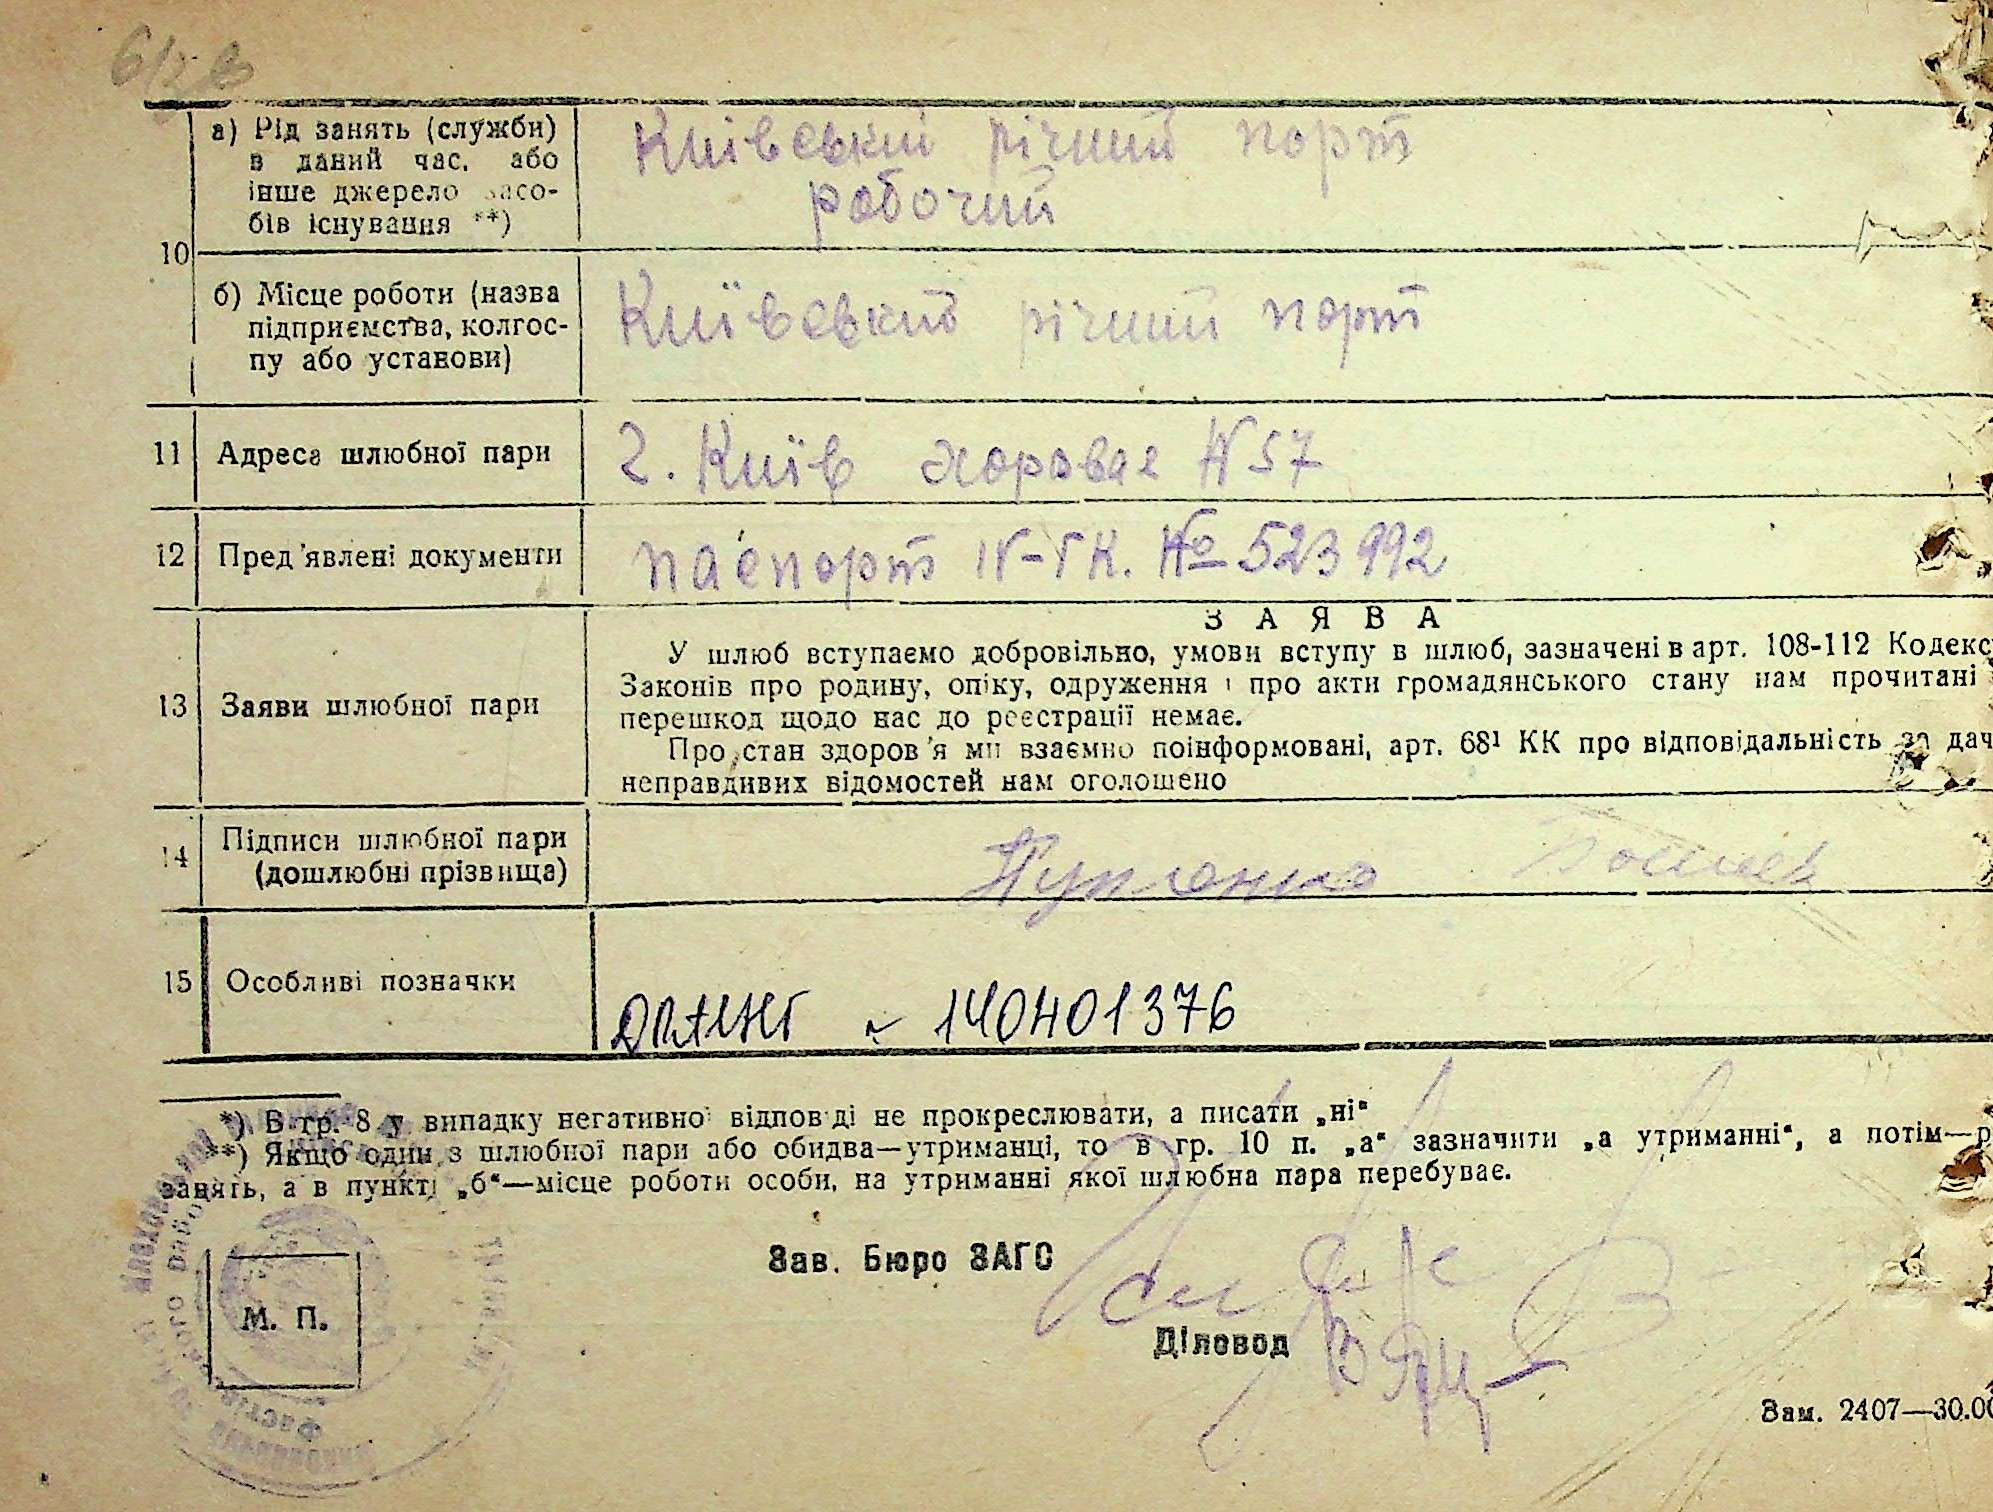 10
а) Рід занять (служби)
в даний час, або
інше джерело засо-
бів існування **)
Київський річний порт
робочий
б) Місце роботи (назва
підприємства, колгос-
пу або установи)
Київський річний порт
11 Адреса шлюбної пари
г. Київ Хоровая № 57
12 Пред'явлені документи
паспорт № 523992
13 Заяви шлюбної пари
ЗАЯВА
У шлюб вступаємо добровільно, умови вступу в шлюб, зазначені в арт. 108-112 Кодексу
Законів про родину, опіку, одруження і про акти громадянського стану нам прочитані
перешкод щодо нас до реєстрації немає.
Про стан здоров'я ми взаємно поінформовані, арт. 68¹ КК про відповідальність за дач
неправдивих відомостей нам оголошено
14 Підписи шлюбної пари
(дошлюбні прізвища)
15 Особливі позначки
140401376
*) В гр. 8 у випадку негативної відповіді не прокреслювати, а писати „ні“
**) Якщо один з шлюбної пари або обидва—утриманці, то в гр. 10 п. „а“ зазначити „а утриманні“, а потім—р
занять, а в пункті „б“—місце роботи особи, на утриманні якої шлюбна пара перебуває.
Зав. Бюро ЗАГС
М. П.
Діловод
Зам. 2407—30.00